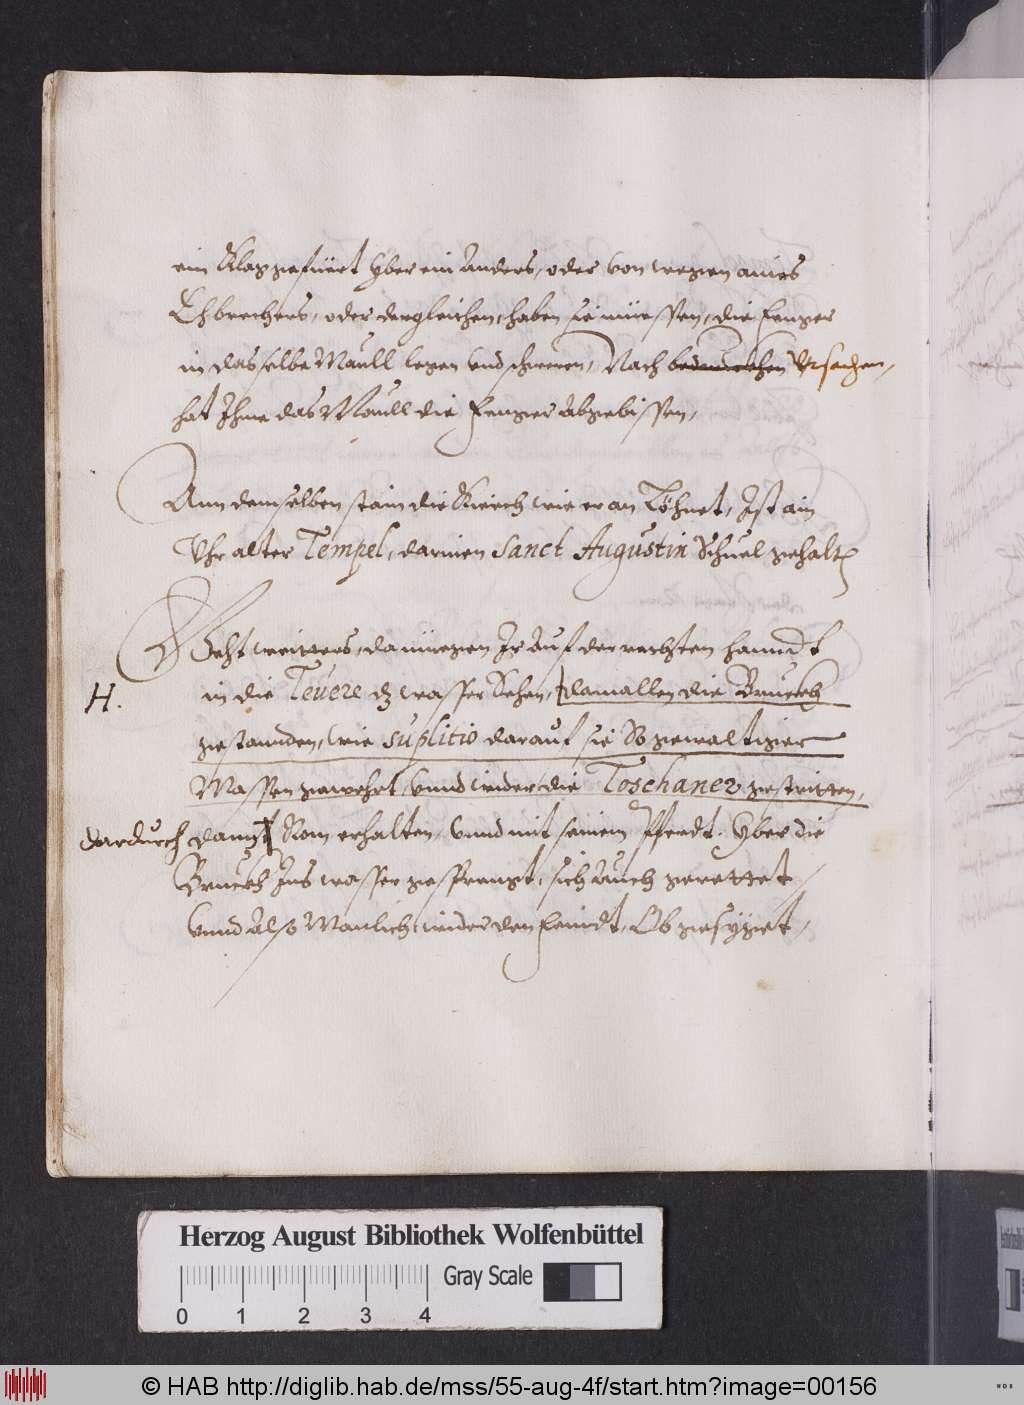 ein Klag gefüert yber ein Anders, oder von wegen aines
Ehbrechers, oder dergleichen, haben sie müessen, die Fenger
in dasselbe Maull legen vnd schweren, Nach Vrsachen,
hat Ihme das Maull die Fenger Abgebissen,
Ann demselben stain die Kierch wie er an Löhnet, Ist ain
Vhr alter Tempel, darinen Sanct Augustin Schuel gehalten
Geht weitters, da müegen Ir Auf der rechten Hanndt
H. in die Tevere dz wasser Sehen, damallen die Bruckh
gestannden, wie suplitio darauf sie So gewaltiger
Massen gewehrt, vnnd wider die Toschaner gestritten,
dardurch Rom erhalten, vnnd mit seinem Pferdt yber die
Bruckh Ins wasser gesprengt, sich Auch gerettet
vnnd Also Manlich wider den Feindt, Ob gesyget,
Herzog August Bibliothek Wolfenbüttel
Gray Scale
0 1 2 3 4
© HAB http://diglib.hab.de/mss/55-aug-4f/start.htm?image=00156